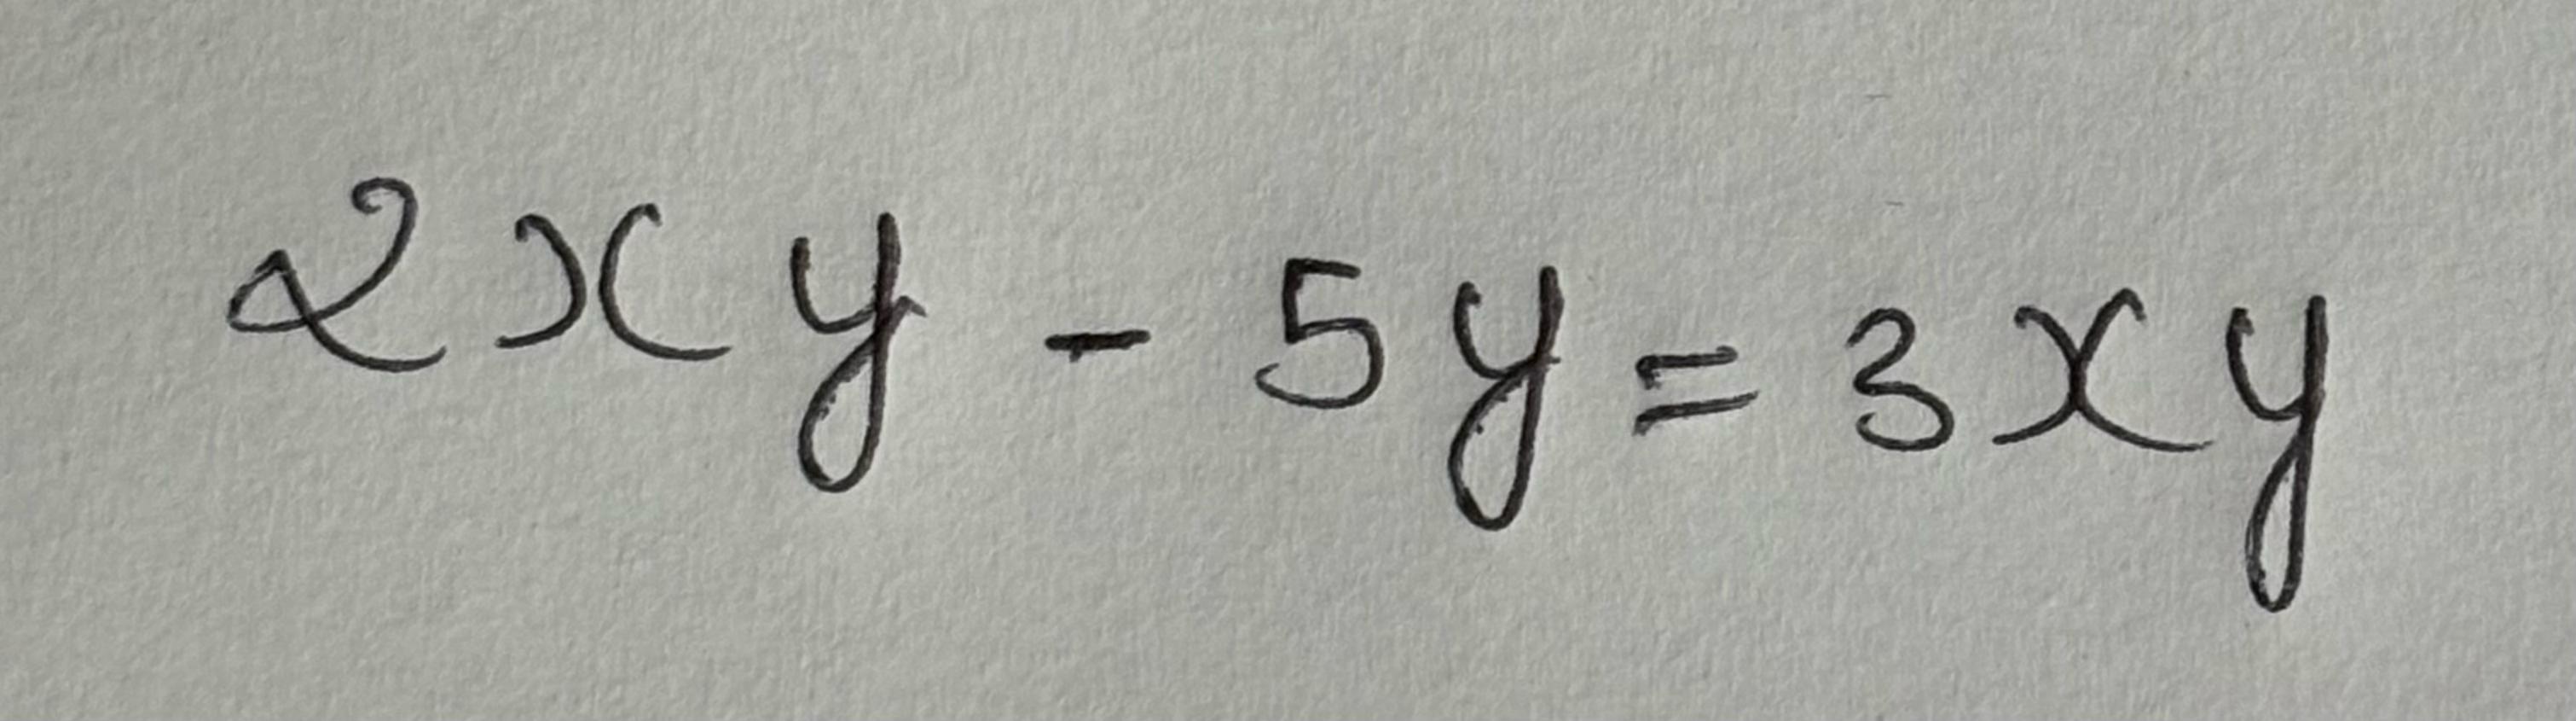 2xy - 5y = 3xy